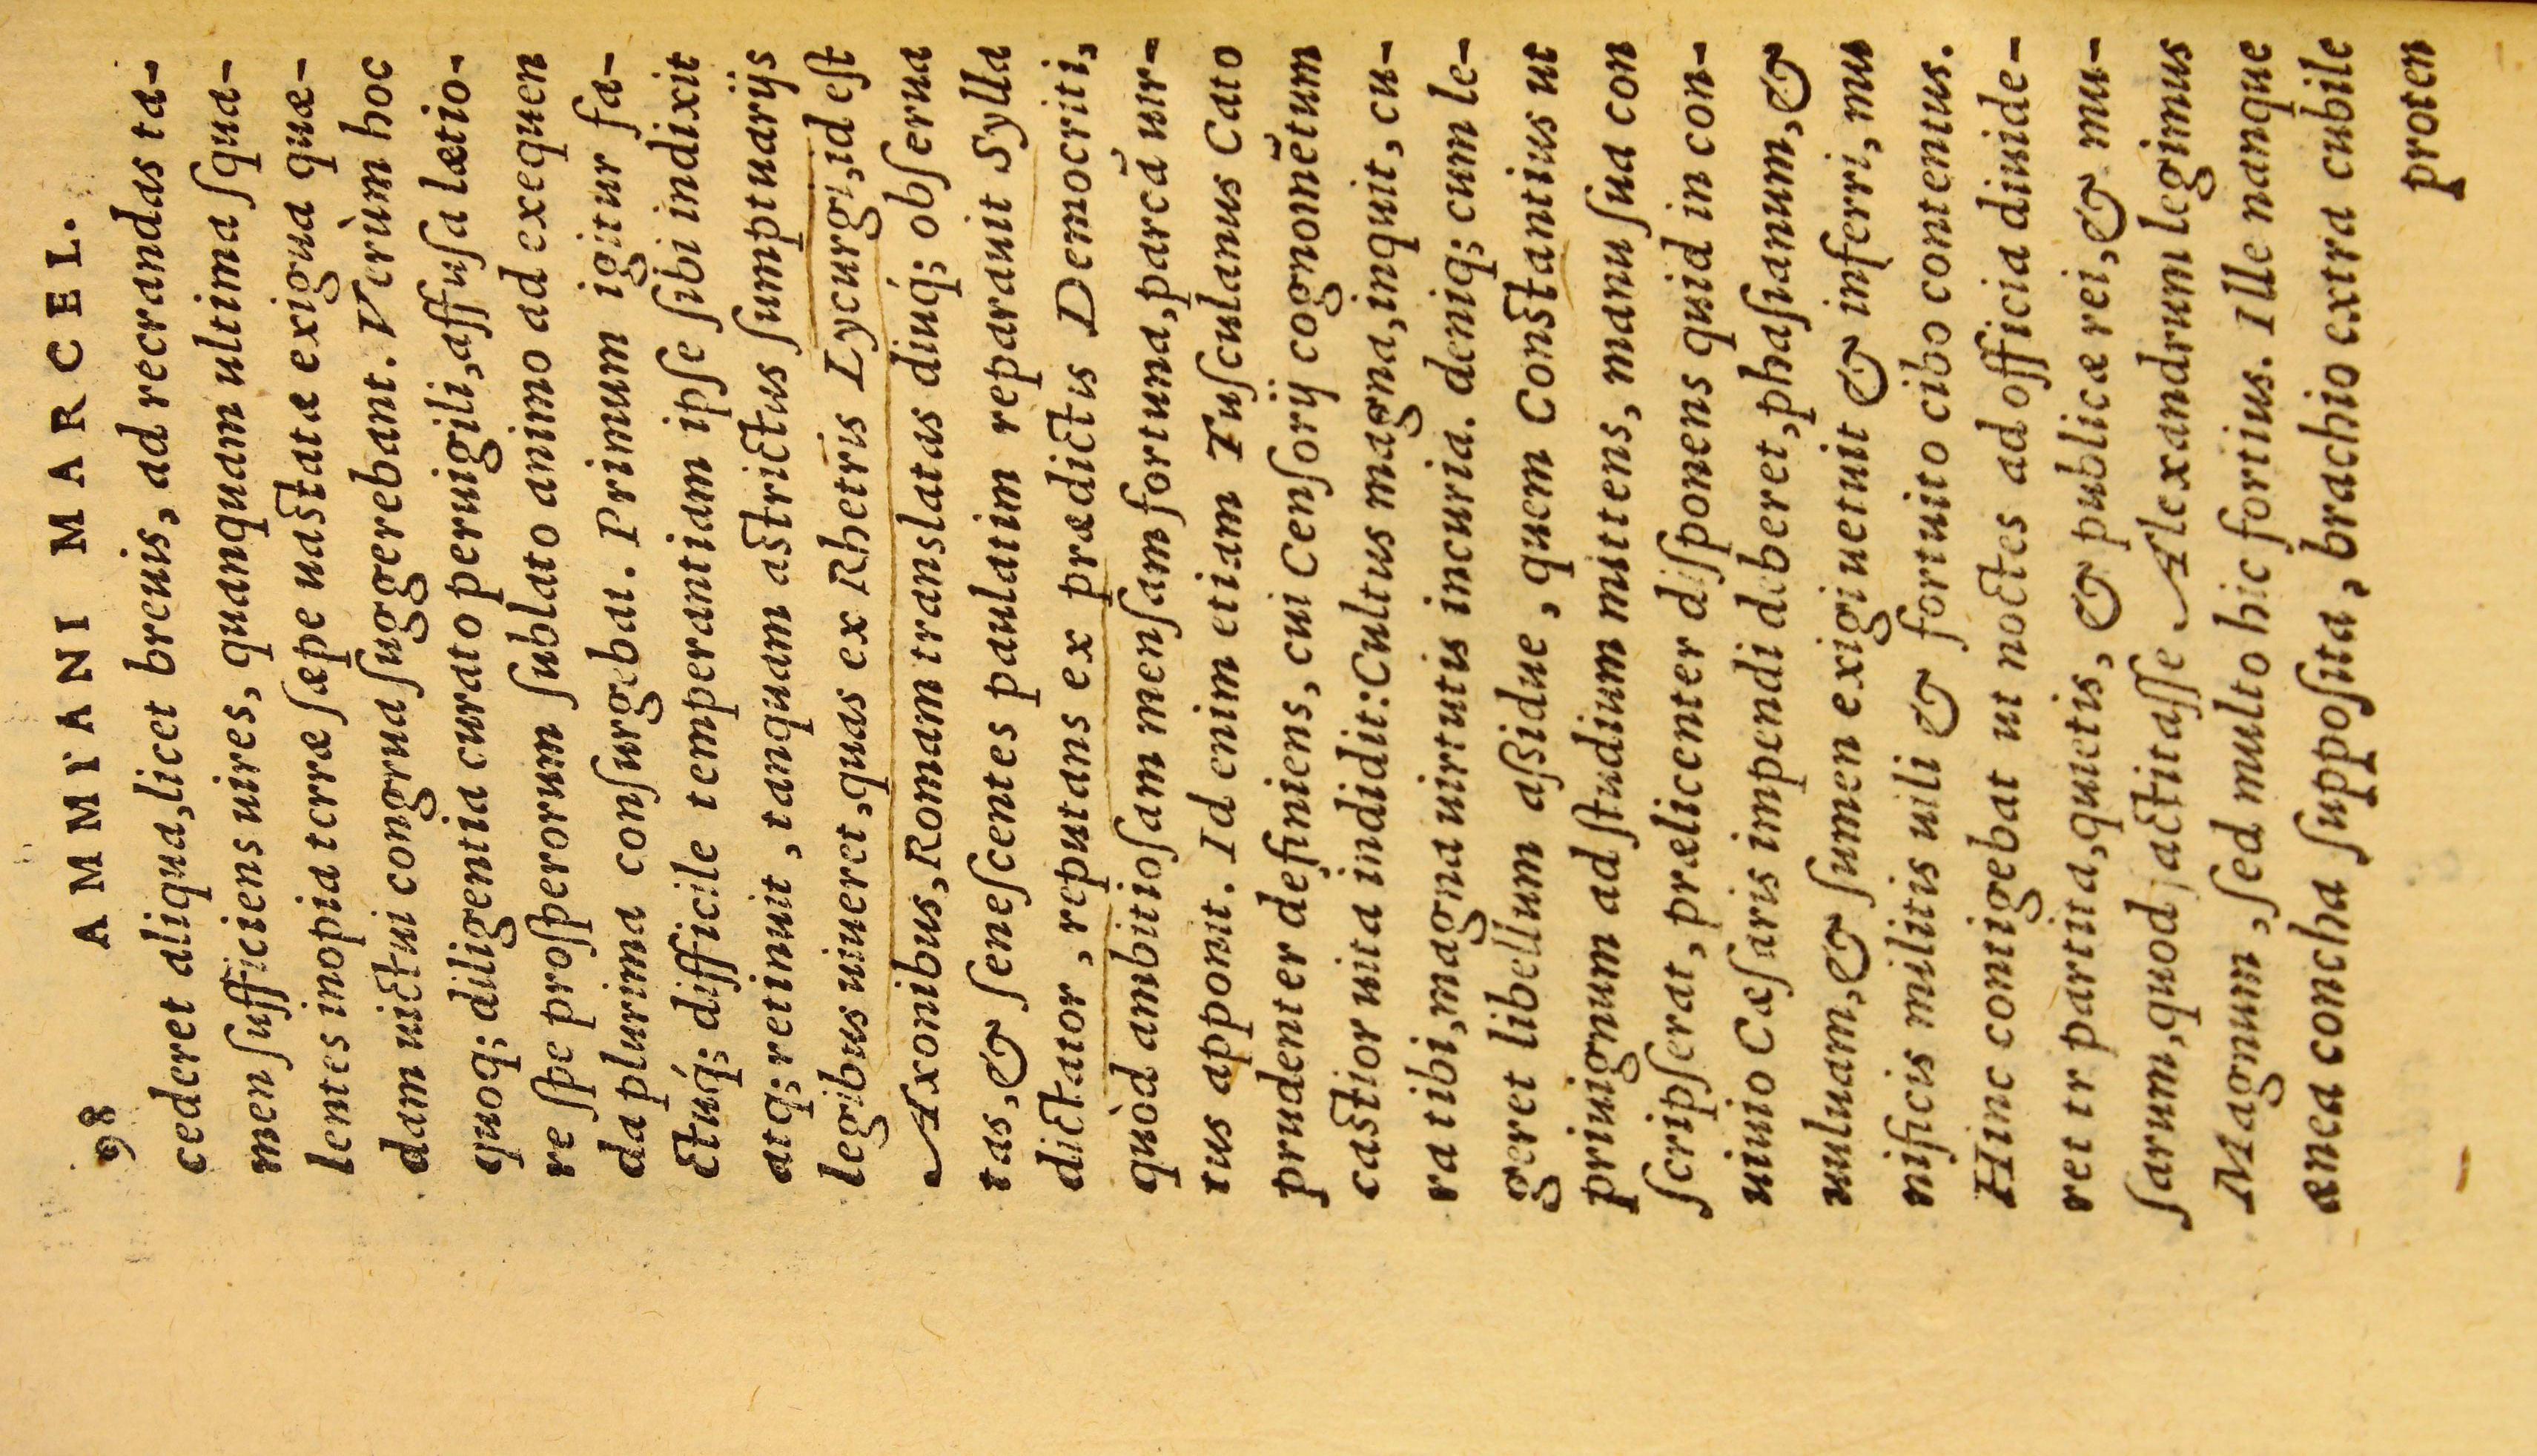 98 AMMIANI MARCEL.
cederet aliqua, licet breuis, ad recrandas ta-
men ſufficiens uires, quanquam ultima ſqua-
lentes inopia terræ ſæpe uaſtatæ exigua quæ-
dam uictui congrua ſuggerebant. Verùm hoc
quoq; diligentia curato peruigili, affuſa lætio-
re ſpe proſperorum ſublato animo ad exequen
da plurima conſurgebat. Primum igitur fa-
ctuq́; difficile temperantiam ipſe ſibi indixit
atq; retinuit, tanquam aſtrictus ſumptuarijs
legibus uiueret, quas ex Rhetris Lycurgi, id eſt
Axonibus, Romam translatas diuq́; obſerua
tas, & ſeneſcentes paulatim reparauit Sylla
dictator, reputans ex prædictis Democriti,
quòd ambitioſam menſam fortuna, parcā uir-
tus apponit. Id enim etiam Tuſculanus Cato
prudenter definiens, cui Cenſorij cognomētum
caſtior uita indidit: Cultus magna, inquit, cu-
ra tibi, magna uirtutis incuria. deniq; cum le-
geret libellum aßidue, quem Conſtantius ut
priuignum ad ſtudium mittens, manu ſua con
ſcripſerat, prælicenter diſponens quid in con-
uiuio Cæſaris impendi deberet, phaſianum, &
uuluam, & ſumen exigi uetuit & inferri, mu
nificis militis uili & fortuito cibo contentus.
Hinc contigebat ut noctes ad officia diuide-
ret tr partita, quietis, & publicæ rei, & mu-
ſarum, quod factitaſſe Alexandrum legimus
Magnum, ſed multo hic fortius. Ille nanque
ænea concha ſuppoſita, brachio extra cubile
proten